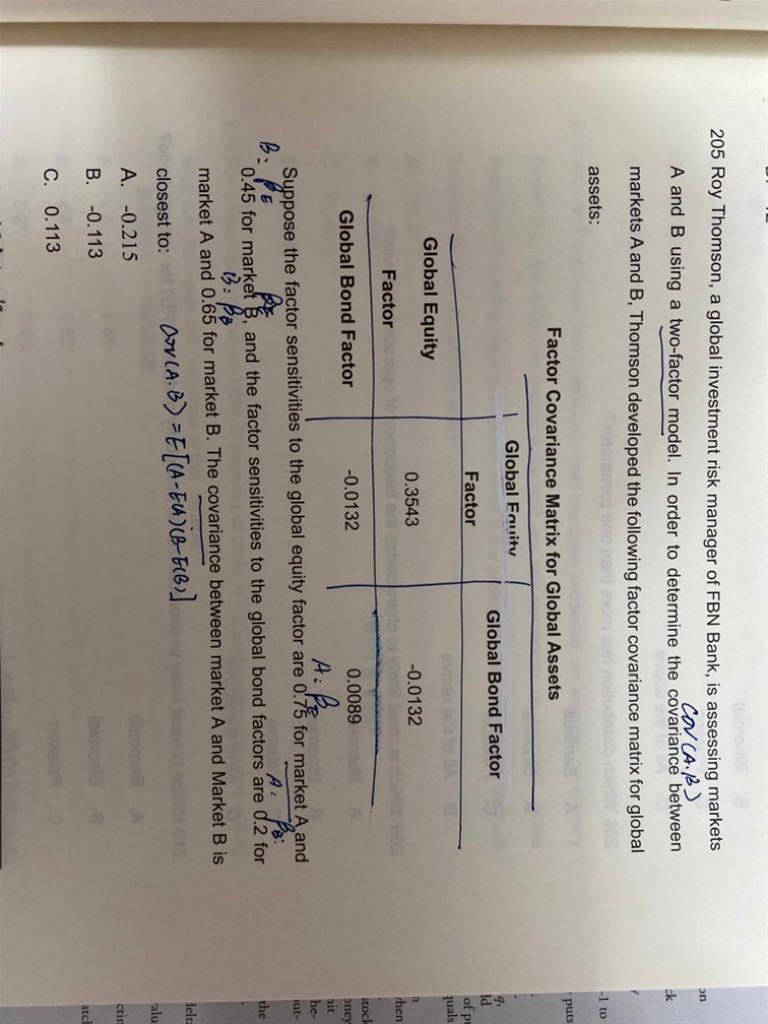 205 Roy Thomson, a global investment risk manager of FBN Bank, is assessing markets
cov(A.B)
A and B using a two-factor model. In order to determine the covariance between
markets A and B, Thomson developed the following factor covariance matrix for global
assets:
Factor Covariance Matrix for Global Assets
Global Equity Factor Global Bond Factor
Global Equity Factor 0.3543 -0.0132
Global Bond Factor -0.0132 0.0089
A: βE
Suppose the factor sensitivities to the global equity factor are 0.75 for market A and
B: βE A: βB:
0.45 for market B, and the factor sensitivities to the global bond factors are 0.2 for
B: βB
market A and 0.65 for market B. The covariance between market A and Market B is
closest to: Cov(A.B) = E[(A-E(A)(B-E(B)]
A. -0.215
B. -0.113
C. 0.113
-1 to
puts
of pu
quals
then
stock
oney
he-
the
delta
valu